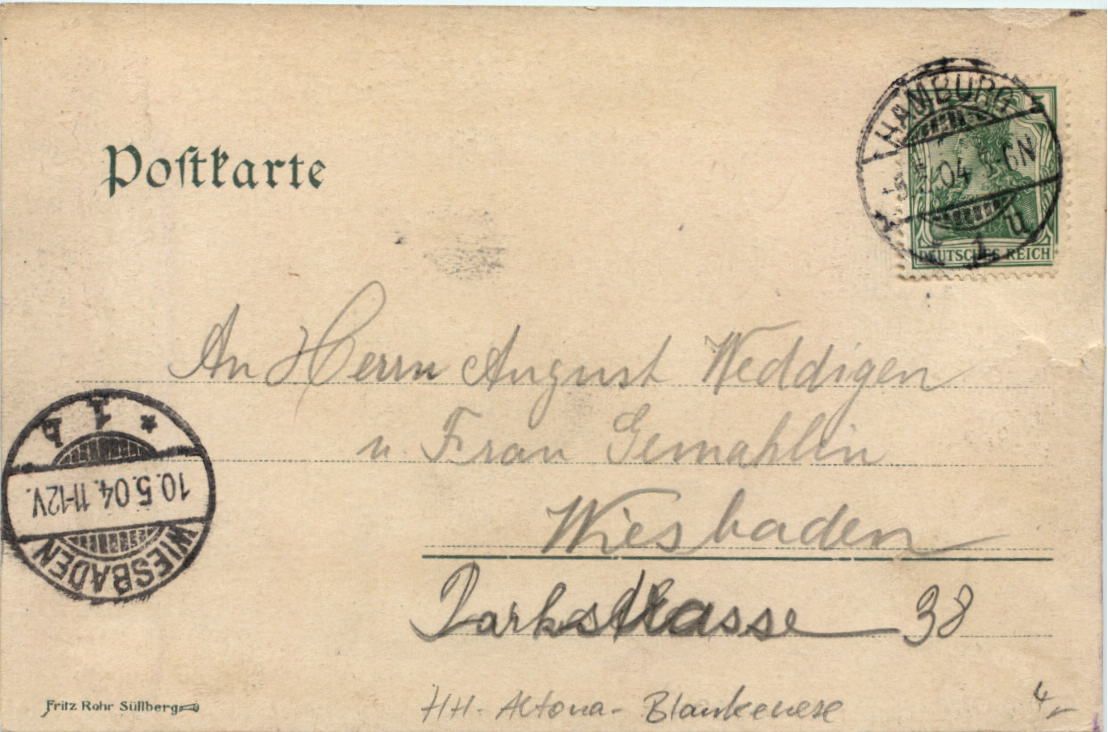 Postkarte
HAMBURG
04 -6N
1 u
DEUTSCHES REICH
An Herrn August Weddigen
u. Frau Gemahlin
Wiesbaden
Parkstrasse 38
* 1 b
10.5.04.11-12V.
WIESBADEN
Fritz Rohr Süllberg
HH- Altona- Blankenese
4,-